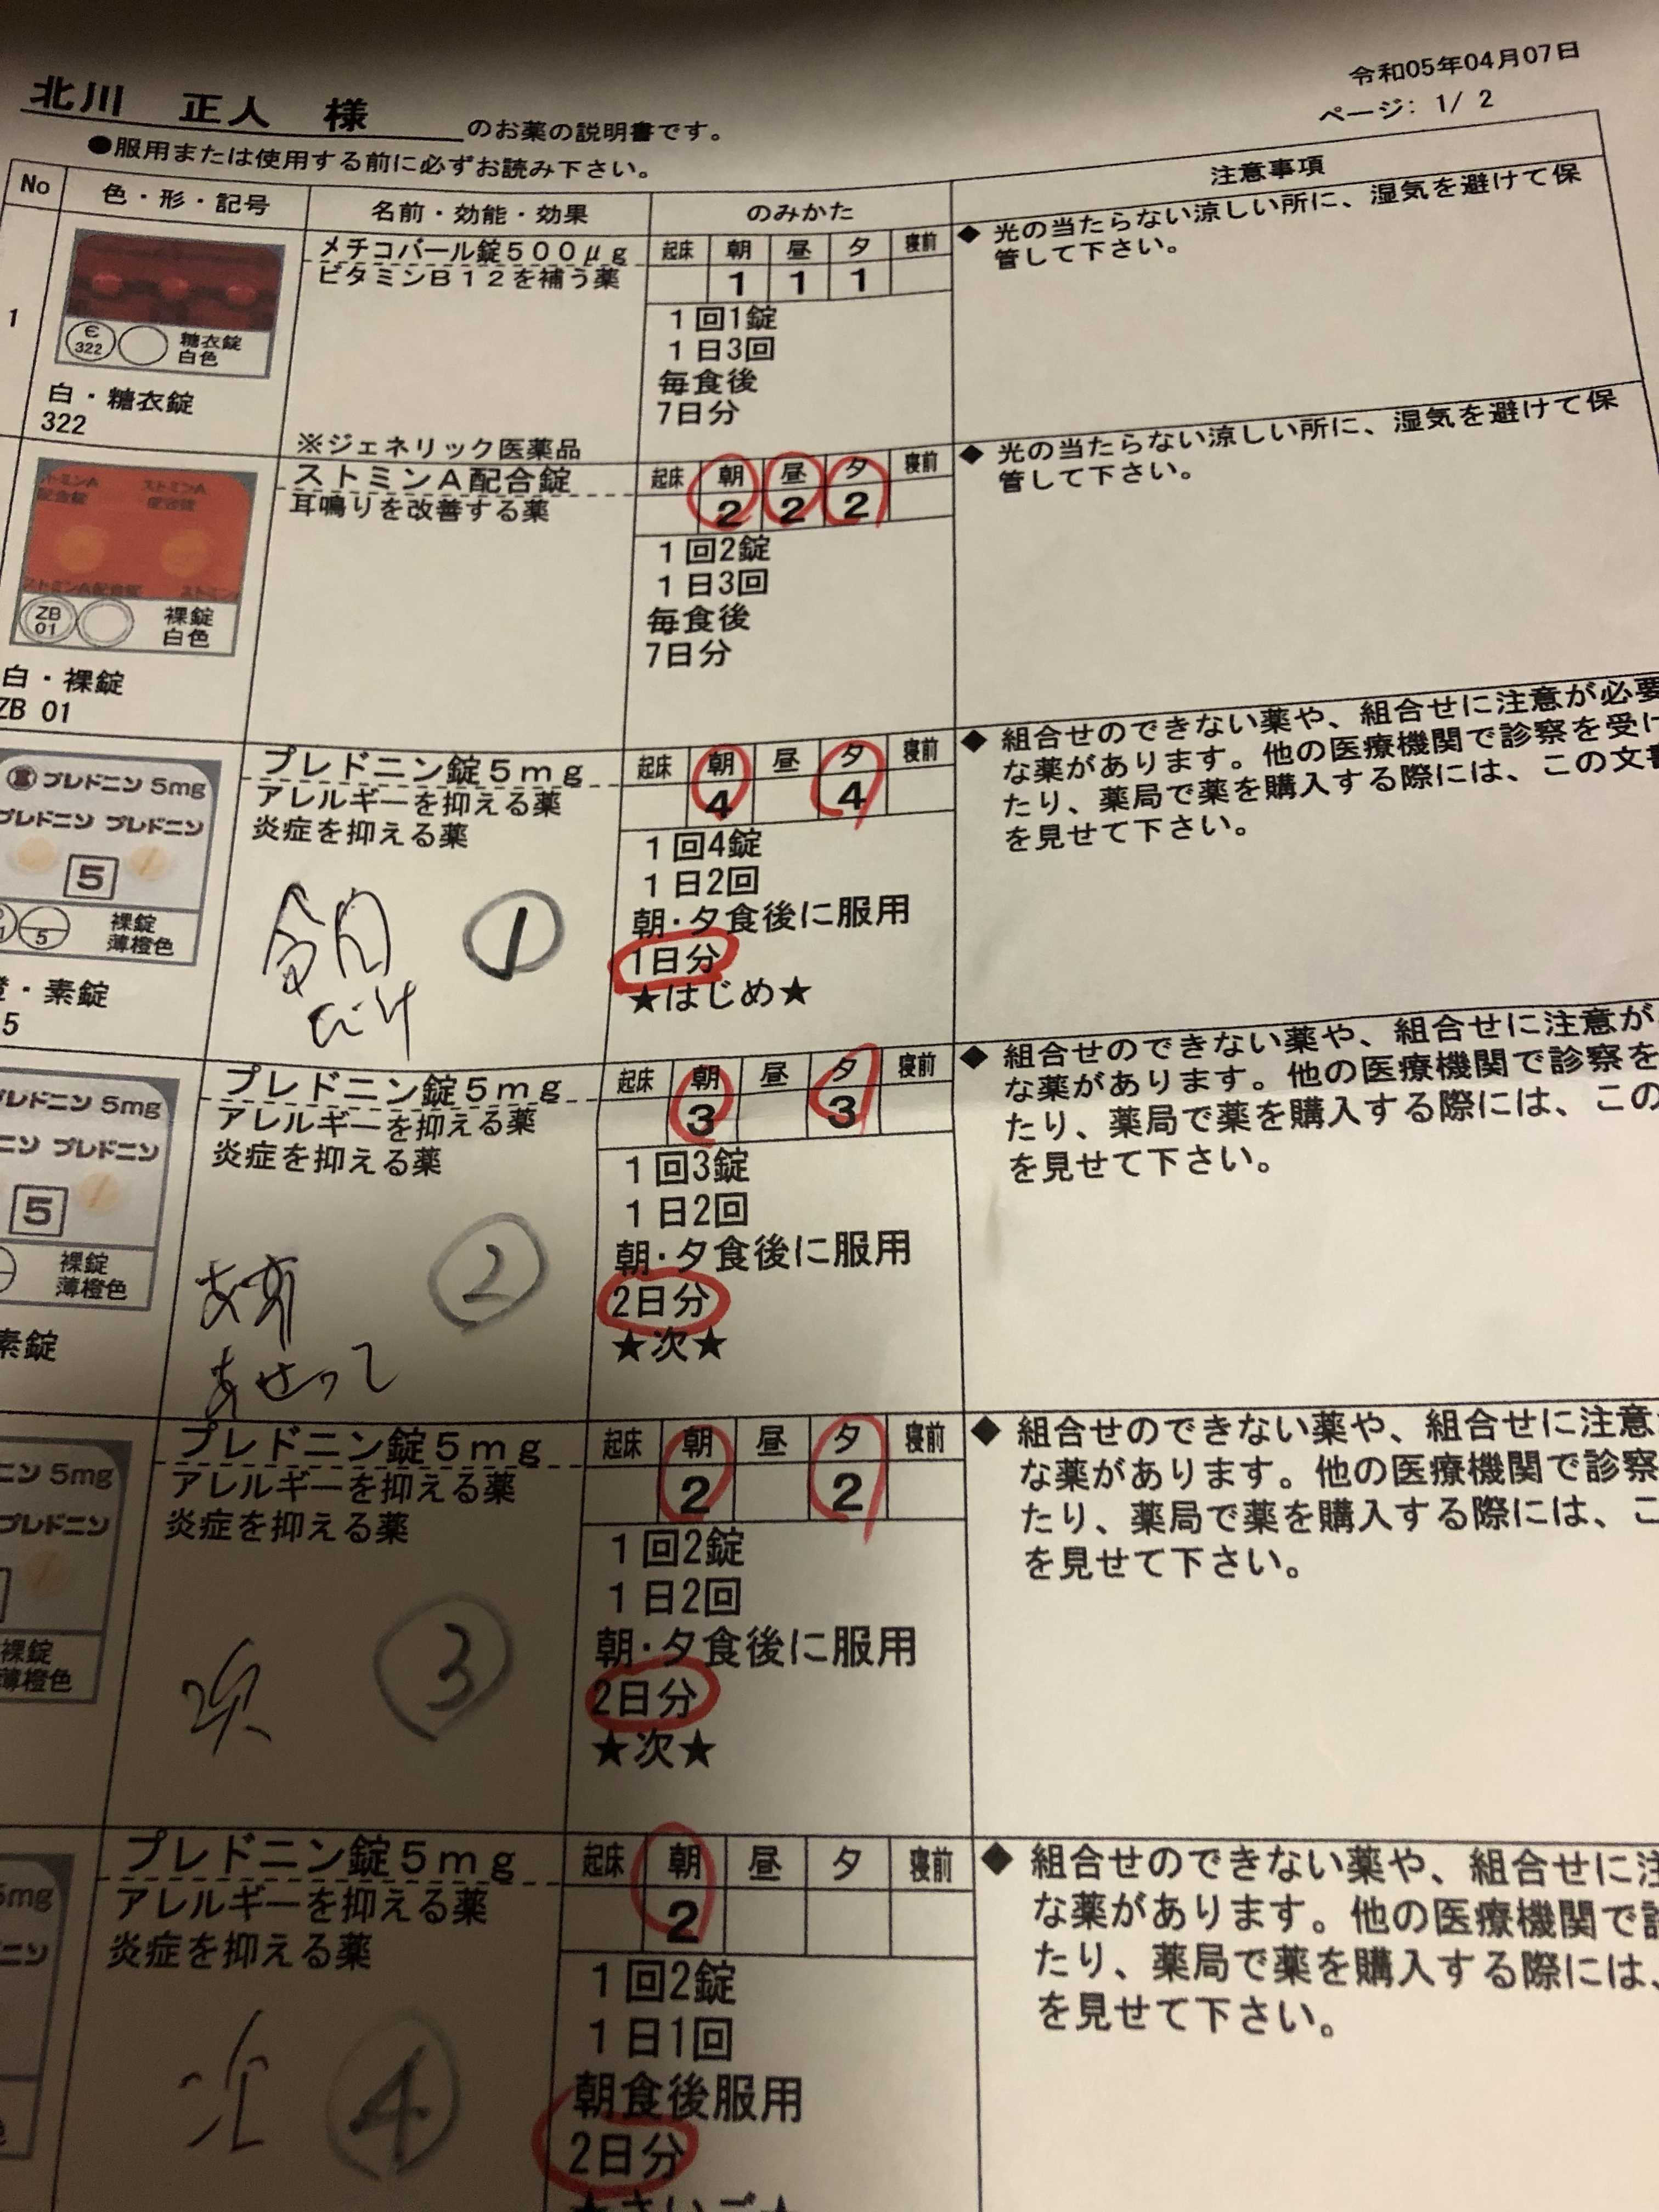 令和05年04月07日
ページ: 1/ 2
北川 正人 様 のお薬の説明書です。
●服用または使用する前に必ずお読み下さい。
No 色・形・記号 名前・効能・効果 のみかた 注意事項
1
322
糖衣錠
白色
白・糖衣錠
322
メチコバール錠500μg
ビタミンB12を補う薬
起床 朝 昼 夕 寝前
1 1 1
1回1錠
1日3回
毎食後
7日分
◆ 光の当たらない涼しい所に、湿気を避けて保
管して下さい。
ストミンA
配合錠
ストミンA配合錠
ZB
01
裸錠
白色
白・裸錠
ZB 01
※ジェネリック医薬品
ストミンA配合錠
耳鳴りを改善する薬
起床 朝 昼 夕 寝前
2 2 2
1回2錠
1日3回
毎食後
7日分
◆ 光の当たらない涼しい所に、湿気を避けて保
管して下さい。
プレドニン 5mg
プレドニン プレドニン
5
5
裸錠
薄橙色
・素錠
5
プレドニン錠5mg
アレルギーを抑える薬
炎症を抑える薬
①
起床 朝 昼 夕 寝前
4 4
1回4錠
1日2回
朝・夕食後に服用
1日分
★はじめ★
◆ 組合せのできない薬や、組合せに注意が必要
な薬があります。他の医療機関で診察を受け
たり、薬局で薬を購入する際には、この文書
を見せて下さい。
プレドニン 5mg
ニン プレドニン
5
裸錠
薄橙色
素錠
プレドニン錠5mg
アレルギーを抑える薬
炎症を抑える薬
②
あす
あさって
起床 朝 昼 夕 寝前
3 3
1回3錠
1日2回
朝・夕食後に服用
2日分
★次★
◆ 組合せのできない薬や、組合せに注意が
な薬があります。他の医療機関で診察を
たり、薬局で薬を購入する際には、この
を見せて下さい。
ニン 5mg
プレドニン
裸錠
薄橙色
プレドニン錠5mg
アレルギーを抑える薬
炎症を抑える薬
次 ③
起床 朝 昼 夕 寝前
2 2
1回2錠
1日2回
朝・夕食後に服用
2日分
★次★
◆ 組合せのできない薬や、組合せに注意
な薬があります。他の医療機関で診察
たり、薬局で薬を購入する際には、こ
を見せて下さい。
5mg
ニン
プレドニン錠5mg
アレルギーを抑える薬
炎症を抑える薬
④
起床 朝 昼 夕 寝前
2
1回2錠
1日1回
朝食後服用
2日分
★さいご★
◆ 組合せのできない薬や、組合せに注
な薬があります。他の医療機関で診
たり、薬局で薬を購入する際には、
を見せて下さい。